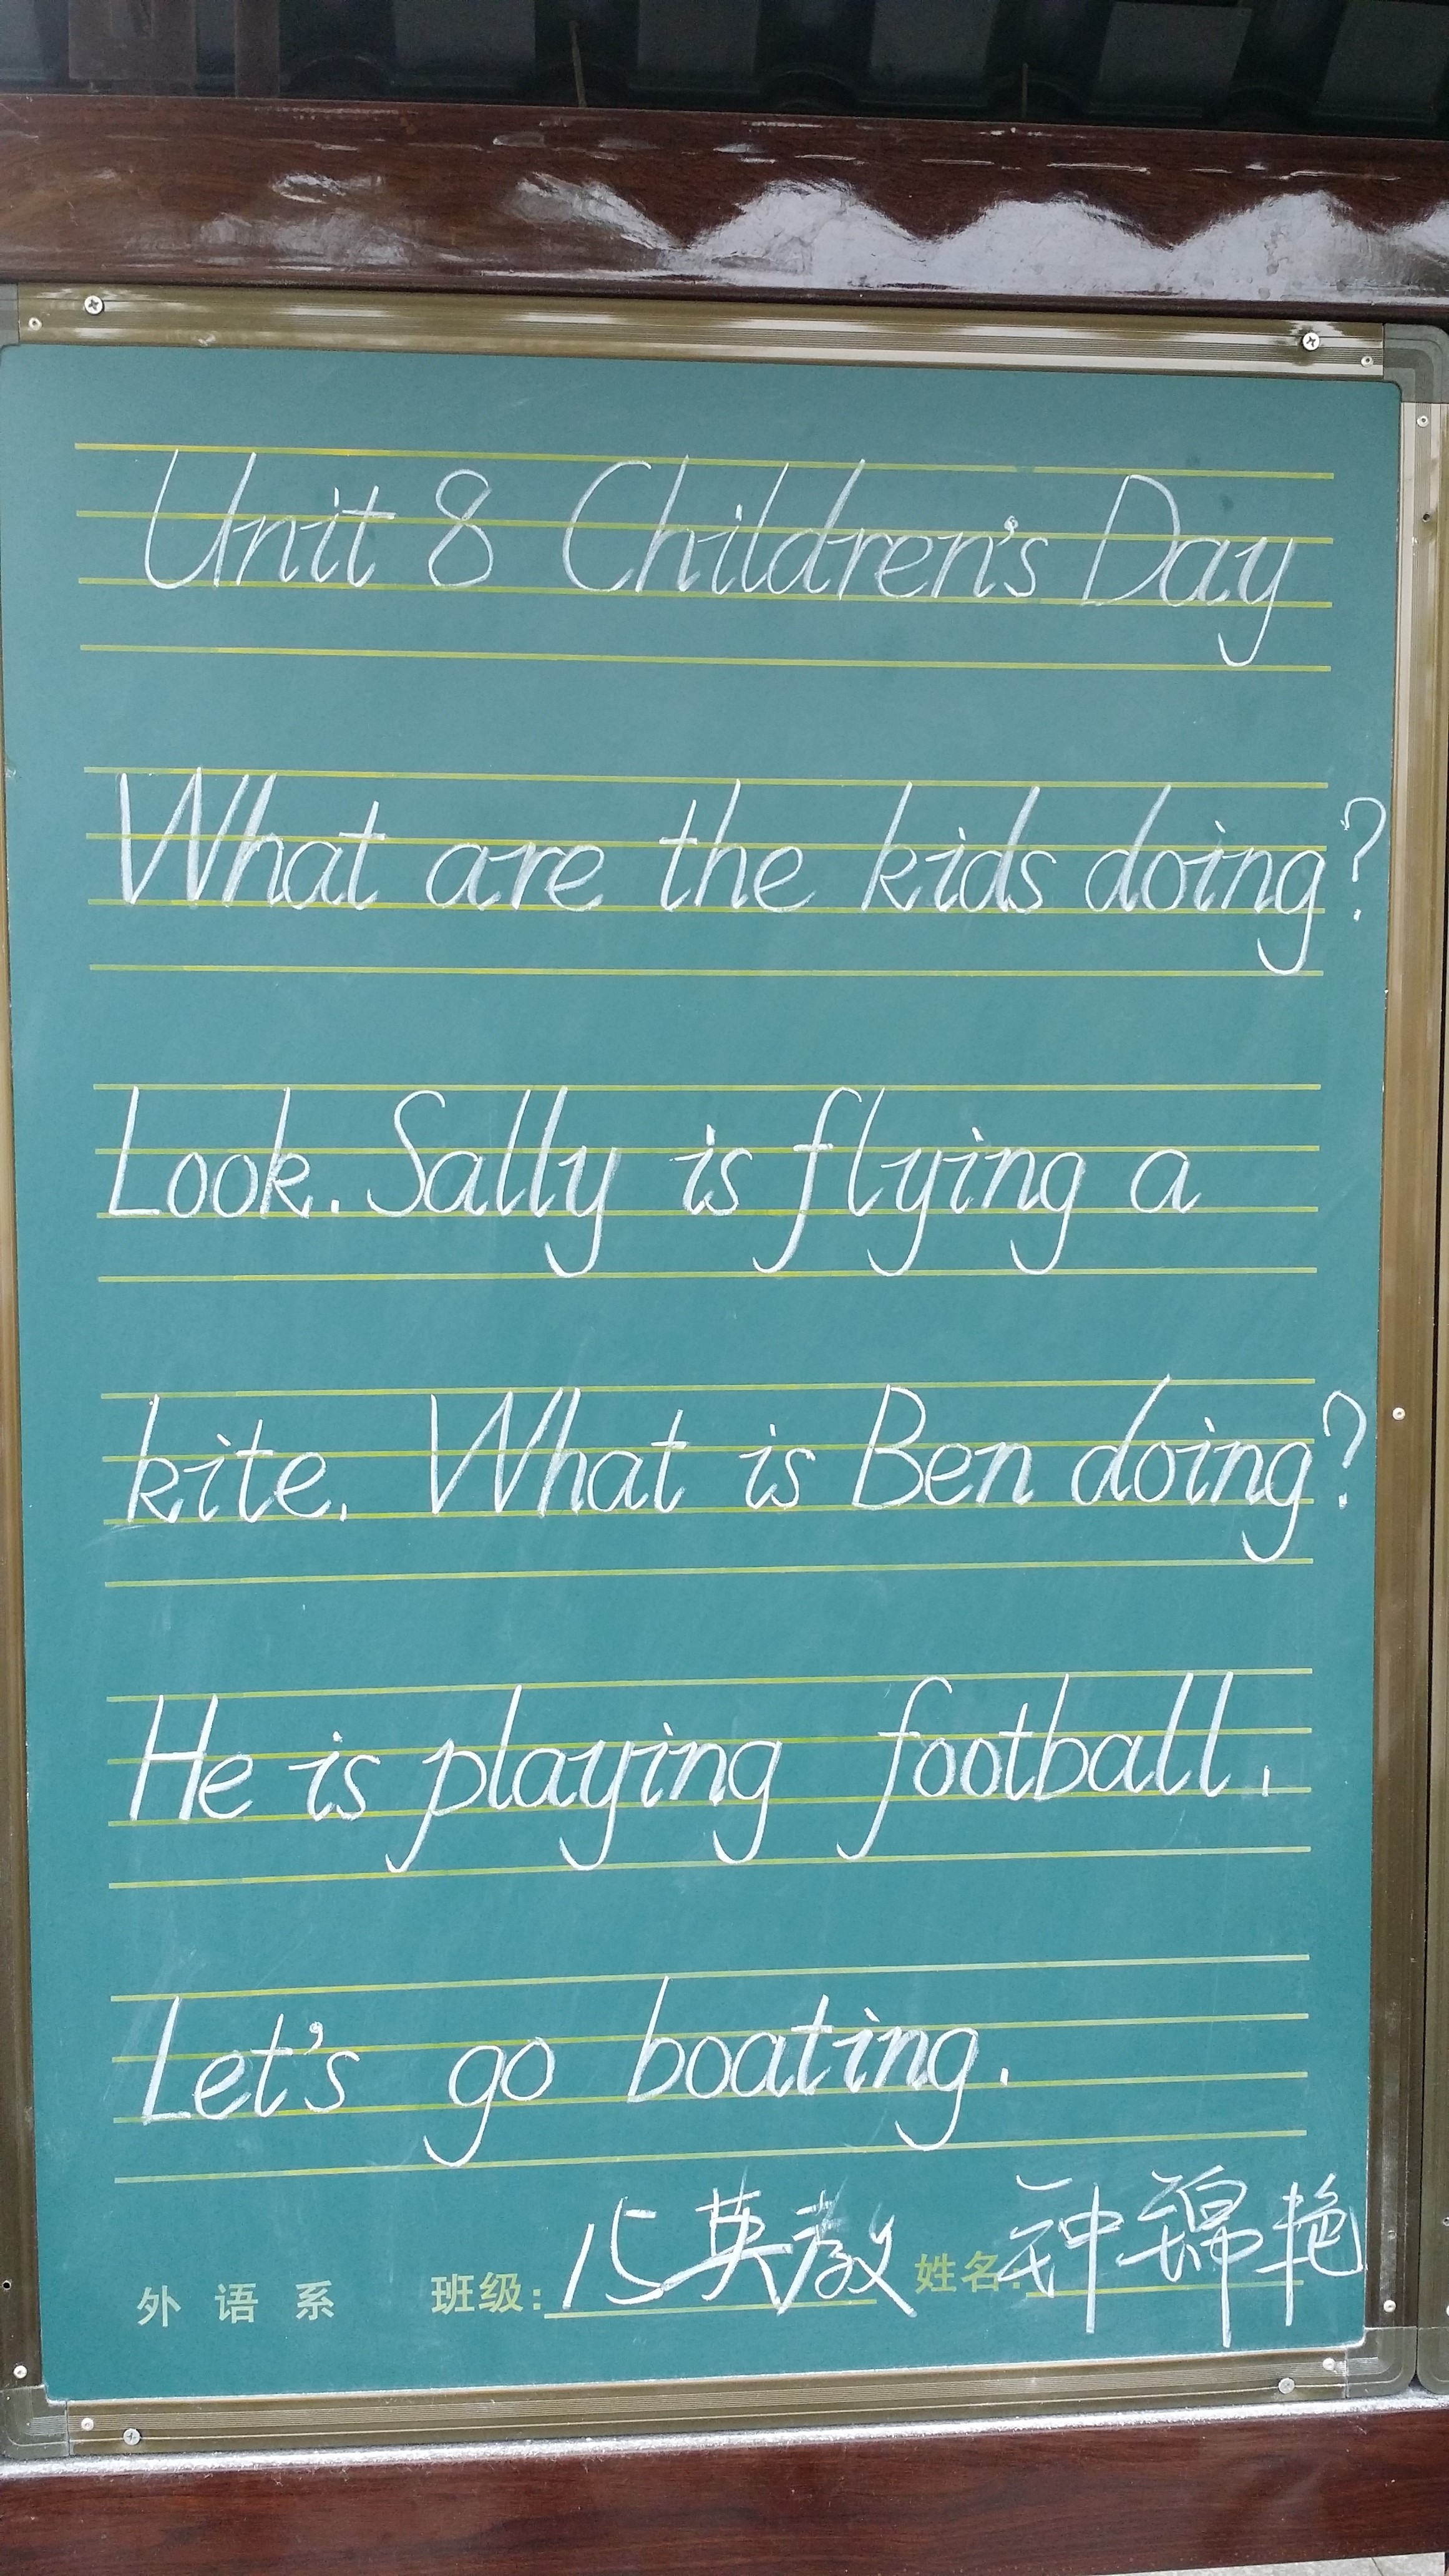 Unit 8 Children's Day
What are the kids doing?
Look. Sally is flying a
kite. What is Ben doing?
He is playing football.
Let's go boating.
外语系 班级: 15英教 姓名: 钟锦艳